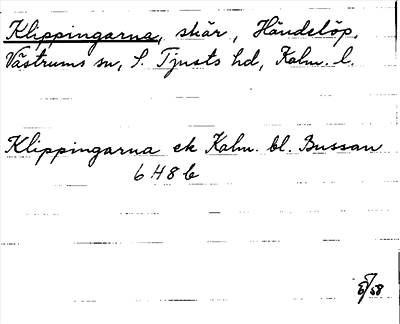 Klippingarna, skär, Händelöp,
Västrums sn, S. Tjusts hd, Kalm. l.
Klippingarna ek Kalm. bl. Bussan
648 b
58